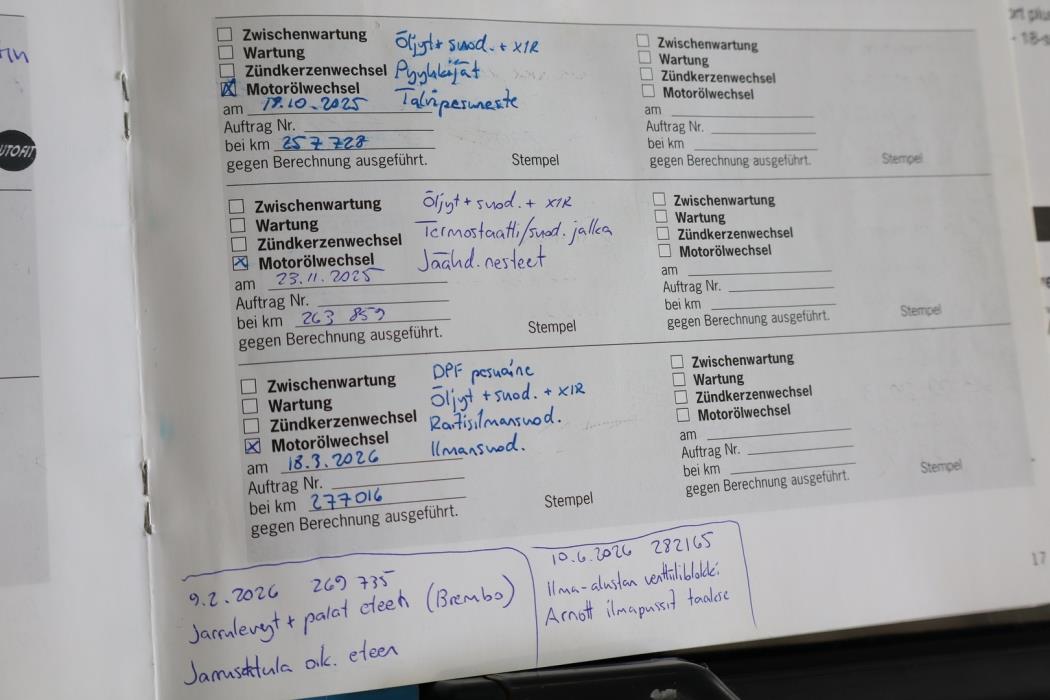 AUTOFIT
Zwischenwartung
Wartung
Zündkerzenwechsel
Motorölwechsel
Öljyt + suod. + X1R
Pyyhkijät
Talvipesuneste
am 19.10.2025
Auftrag Nr.
bei km 257 728
gegen Berechnung ausgeführt.
Stempel
Zwischenwartung
Wartung
Zündkerzenwechsel
Motorölwechsel
am
Auftrag Nr.
bei km
gegen Berechnung ausgeführt.
Stempel
Zwischenwartung
Wartung
Zündkerzenwechsel
Motorölwechsel
Öljyt + suod. + X1R
Termostaatti/suod. jalka
Jäähd. nesteet
am 23.11.2025
Auftrag Nr.
bei km 263 859
gegen Berechnung ausgeführt.
Stempel
Zwischenwartung
Wartung
Zündkerzenwechsel
Motorölwechsel
am
Auftrag Nr.
bei km
gegen Berechnung ausgeführt.
Stempel
Zwischenwartung
Wartung
Zündkerzenwechsel
Motorölwechsel
DPF pesuaine
Öljyt + suod. + X1R
Raitisilmansuod.
Ilmansuod.
am 18.3.2026
Auftrag Nr.
bei km 277016
gegen Berechnung ausgeführt.
Stempel
Zwischenwartung
Wartung
Zündkerzenwechsel
Motorölwechsel
am
Auftrag Nr.
bei km
gegen Berechnung ausgeführt.
Stempel
9.2.2026 269 735
Jarrulevyt + palat eteen (Brembo)
Jarrusatula oik. eteen
10.6.2026 282165
Ilma-alustan venttiiliblokki
Arnott ilmapussit taakse
17